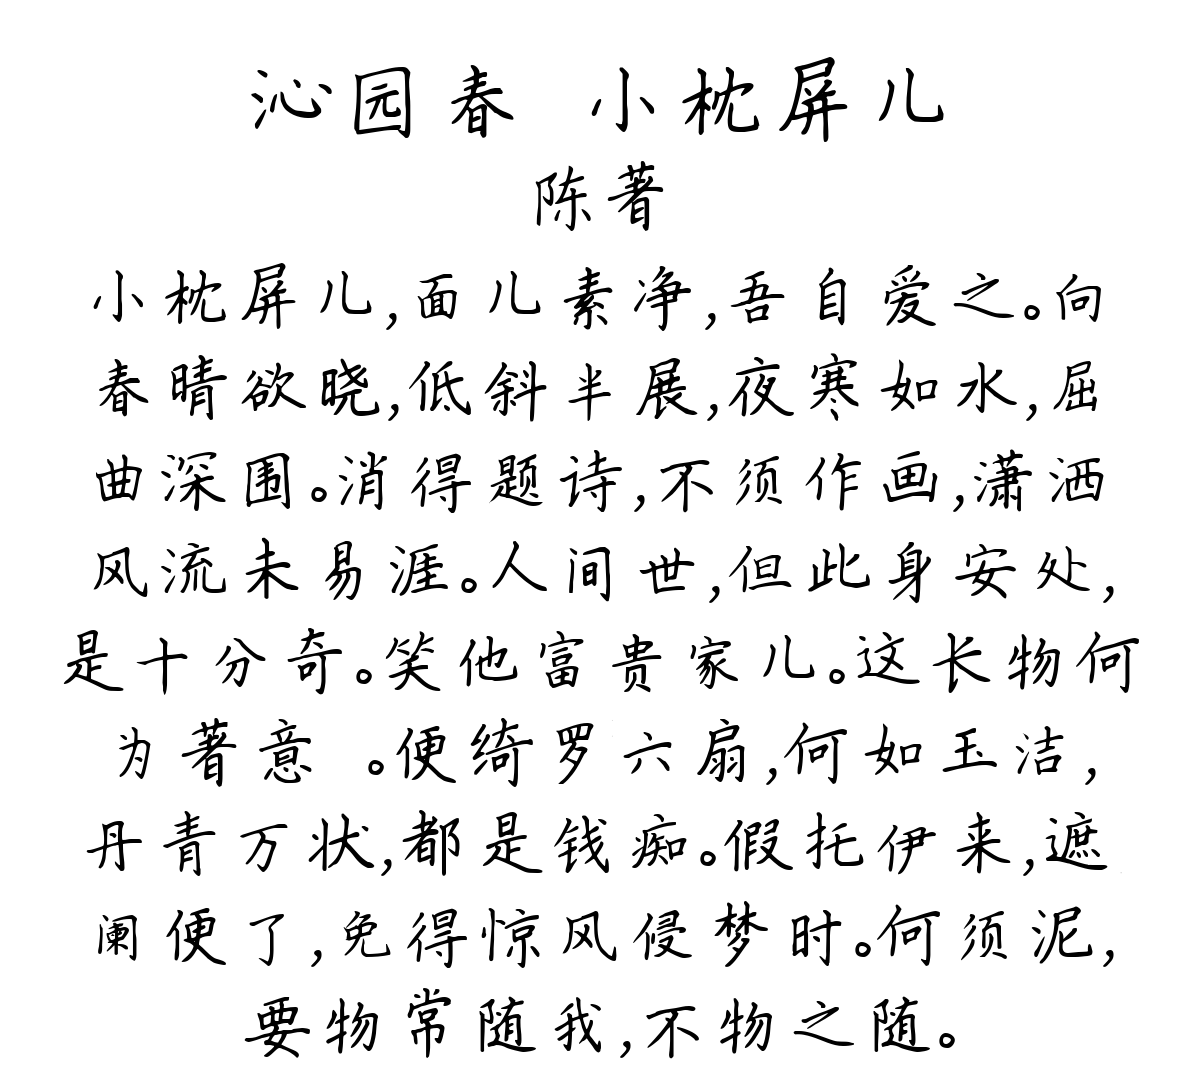 沁园春 小枕屏儿
陈著
小枕屏儿,面儿素净,吾自爱之。向
春晴欲晓,低斜半展,夜寒如水,屈
曲深围。消得题诗,不须作画,潇洒
风流未易涯。人间世,但此身安处,
是十分奇。笑他富贵家儿。这长物何
为著意 。便绮罗六扇,何如玉洁,
丹青万状,都是钱痴。假托伊来,遮
阑便了,免得惊风侵梦时。何须泥,
要物常随我,不物之随。